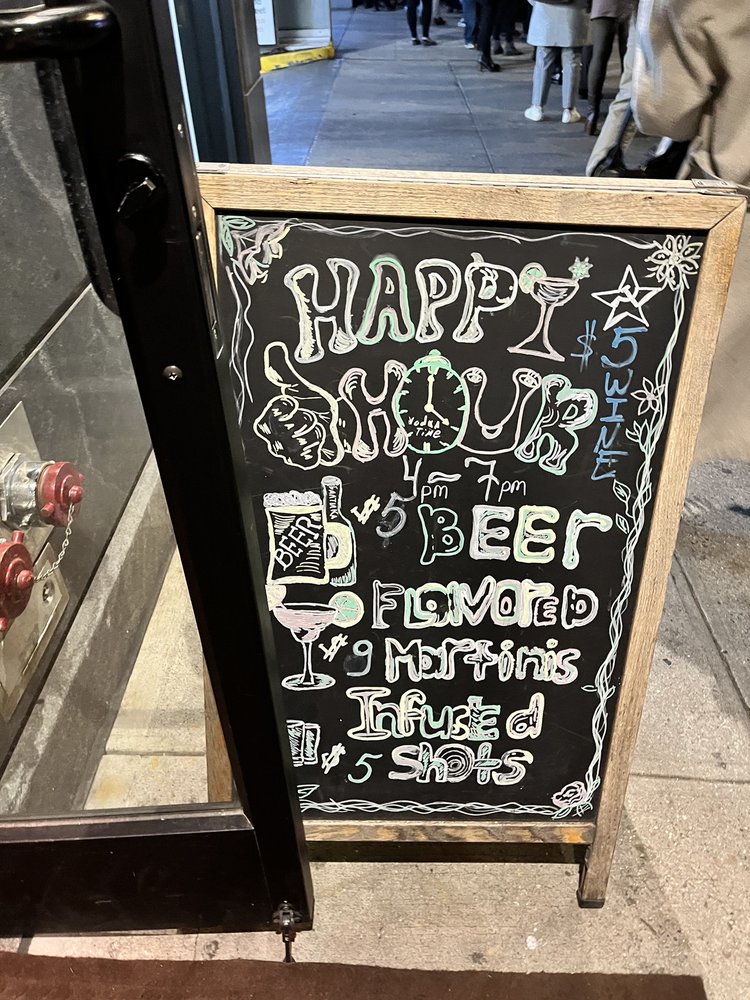 HAPPY
$5 WINE
HOUR
VODKA
TIME
4pm - 7pm
BEER
$5 BEEr
FLAVOrED
$9 Martinis
Infused
$5 Shots